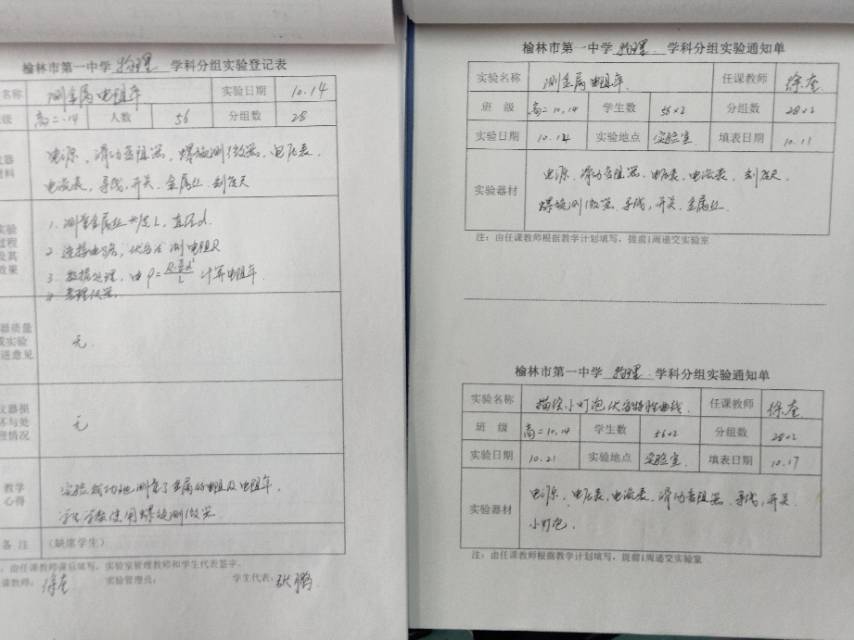 榆林市第一中学 物理 学科分组实验登记表
名称 测金属电阻率 实验日期 10.14
级 高二.14 人数 56 分组数 28
仪器 材料 电源、滑动变阻器、螺旋测微器、电压表、
电流表、导线、开关、金属丝、刻度尺
实验 过程 及其 效果 1. 测量金属丝长度L,直径d.
2 连接电路,伏安法测电阻R
3 数据处理,由 计算电阻率.
4 整理仪器.
器质量 或实验 进意见 无.
仪器损 坏与处 理情况 无
教学 心得 实验成功地测量了金属的电阻及电阻率.
使用螺旋测微器
备注 (缺席学生)
:由任课教师课后填写,实验室管理教师和学生代表签字.
课教师: 徐奎 实验管理员: 学生代表:
榆林市第一中学 物理 学科分组实验通知单
实验名称 测金属电阻率. 任课教师 徐奎
班 级 高二 10.14 学生数 56×2 分组数 28×2
实验日期 10.14 实验地点 实验室 填表日期 10.11
实验器材 电源、滑动变阻器、电压表、电流表、刻度尺
螺旋测微器、导线,开关、金属丝.
注:由任课教师根据教学计划填写,提前1周递交实验室
榆林市第一中学 物理 学科分组实验通知单
实验名称 描绘小灯泡伏安特性曲线. 任课教师 徐奎
班 级 高二 10.14 学生数 56×2 分组数 28×2
实验日期 10.21 实验地点 实验室 填表日期 10.17
实验器材 电源、电压表、电流表、滑动变阻器、导线,开关
小灯泡.
注:由任课教师根据教学计划填写,提前1周递交实验室